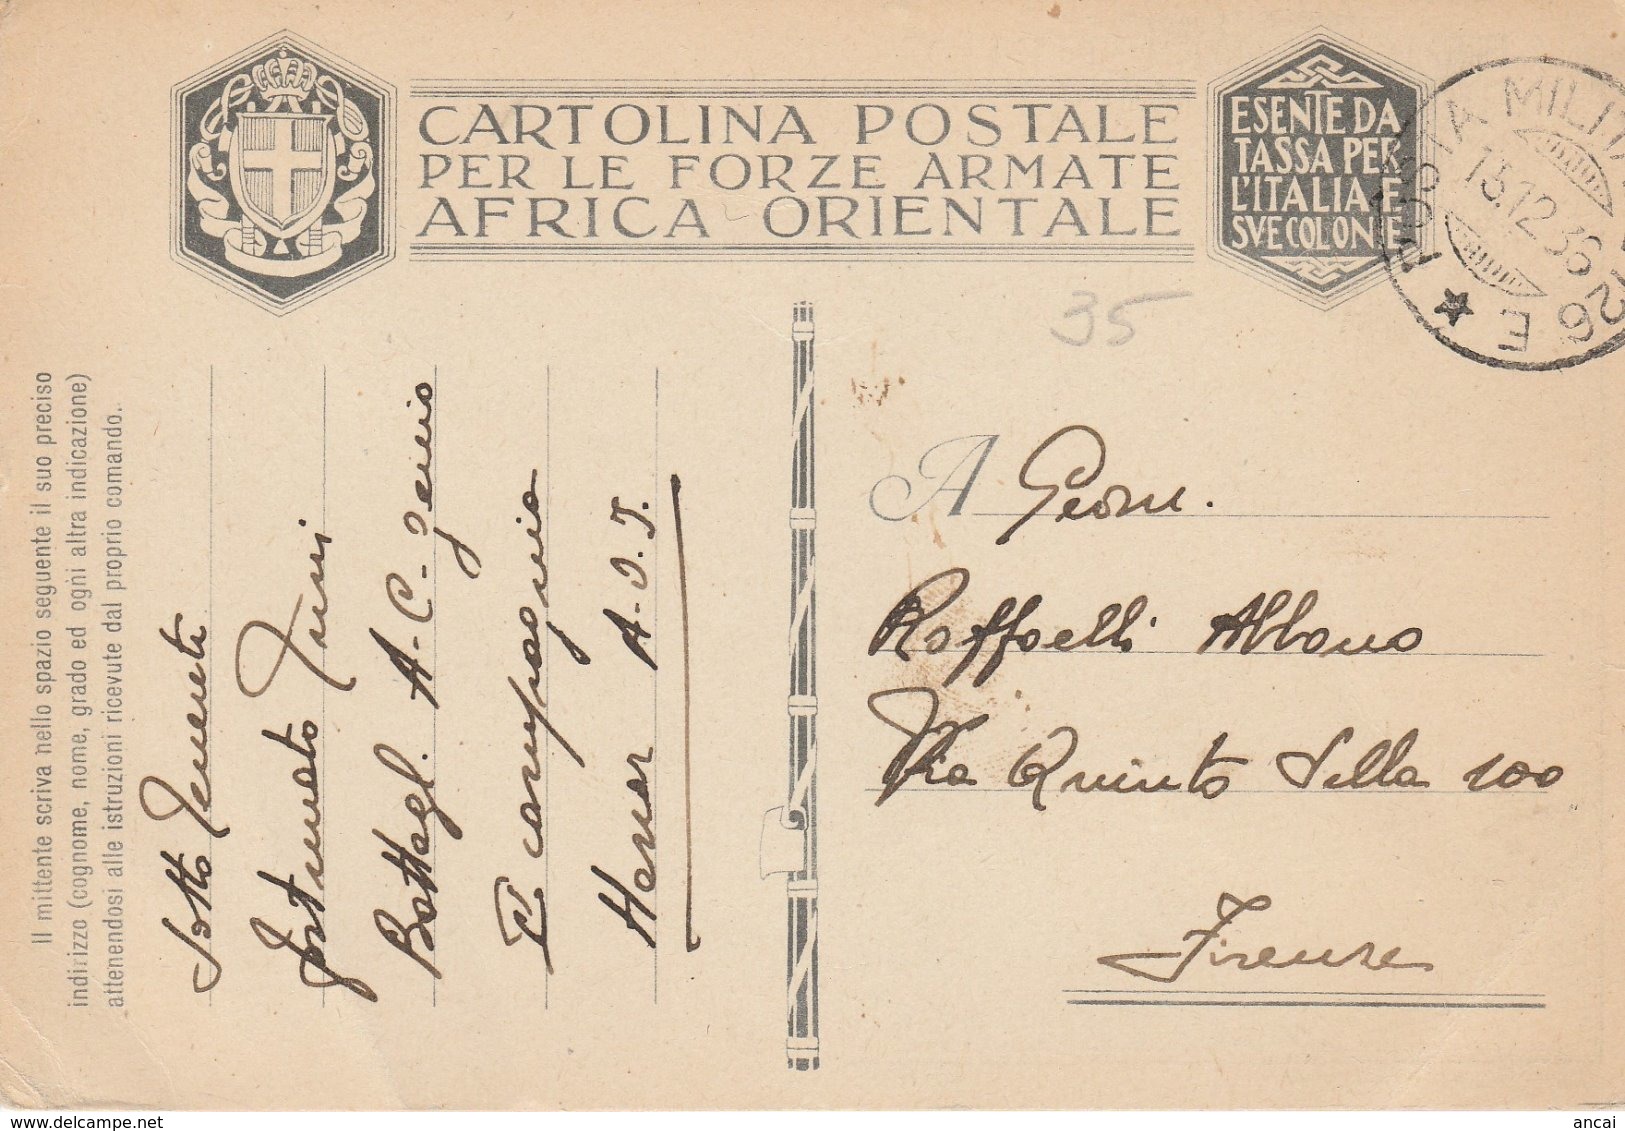 CARTOLINA POSTALE
PER LE FORZE ARMATE
AFRICA ORIENTALE
ESENTE DA
TASSA PER
L'ITALIA E
SVE COLONIE
POSTA MILITA
13.12.36
26 E ★
35
Il mittente scriva nello spazio seguente il suo preciso
indirizzo (cognome, nome, grado ed ogni altra indicazione)
attenendosi alle istruzioni ricevute dal proprio comando.
Sotto Tenente
Fortunato
Battagl. A-C-genio
II compagnia
A.O.I.
A Geom.
Raffaelli Albano
Via Quinto Sella 100
Firenze
www.delcampe.net
ancai